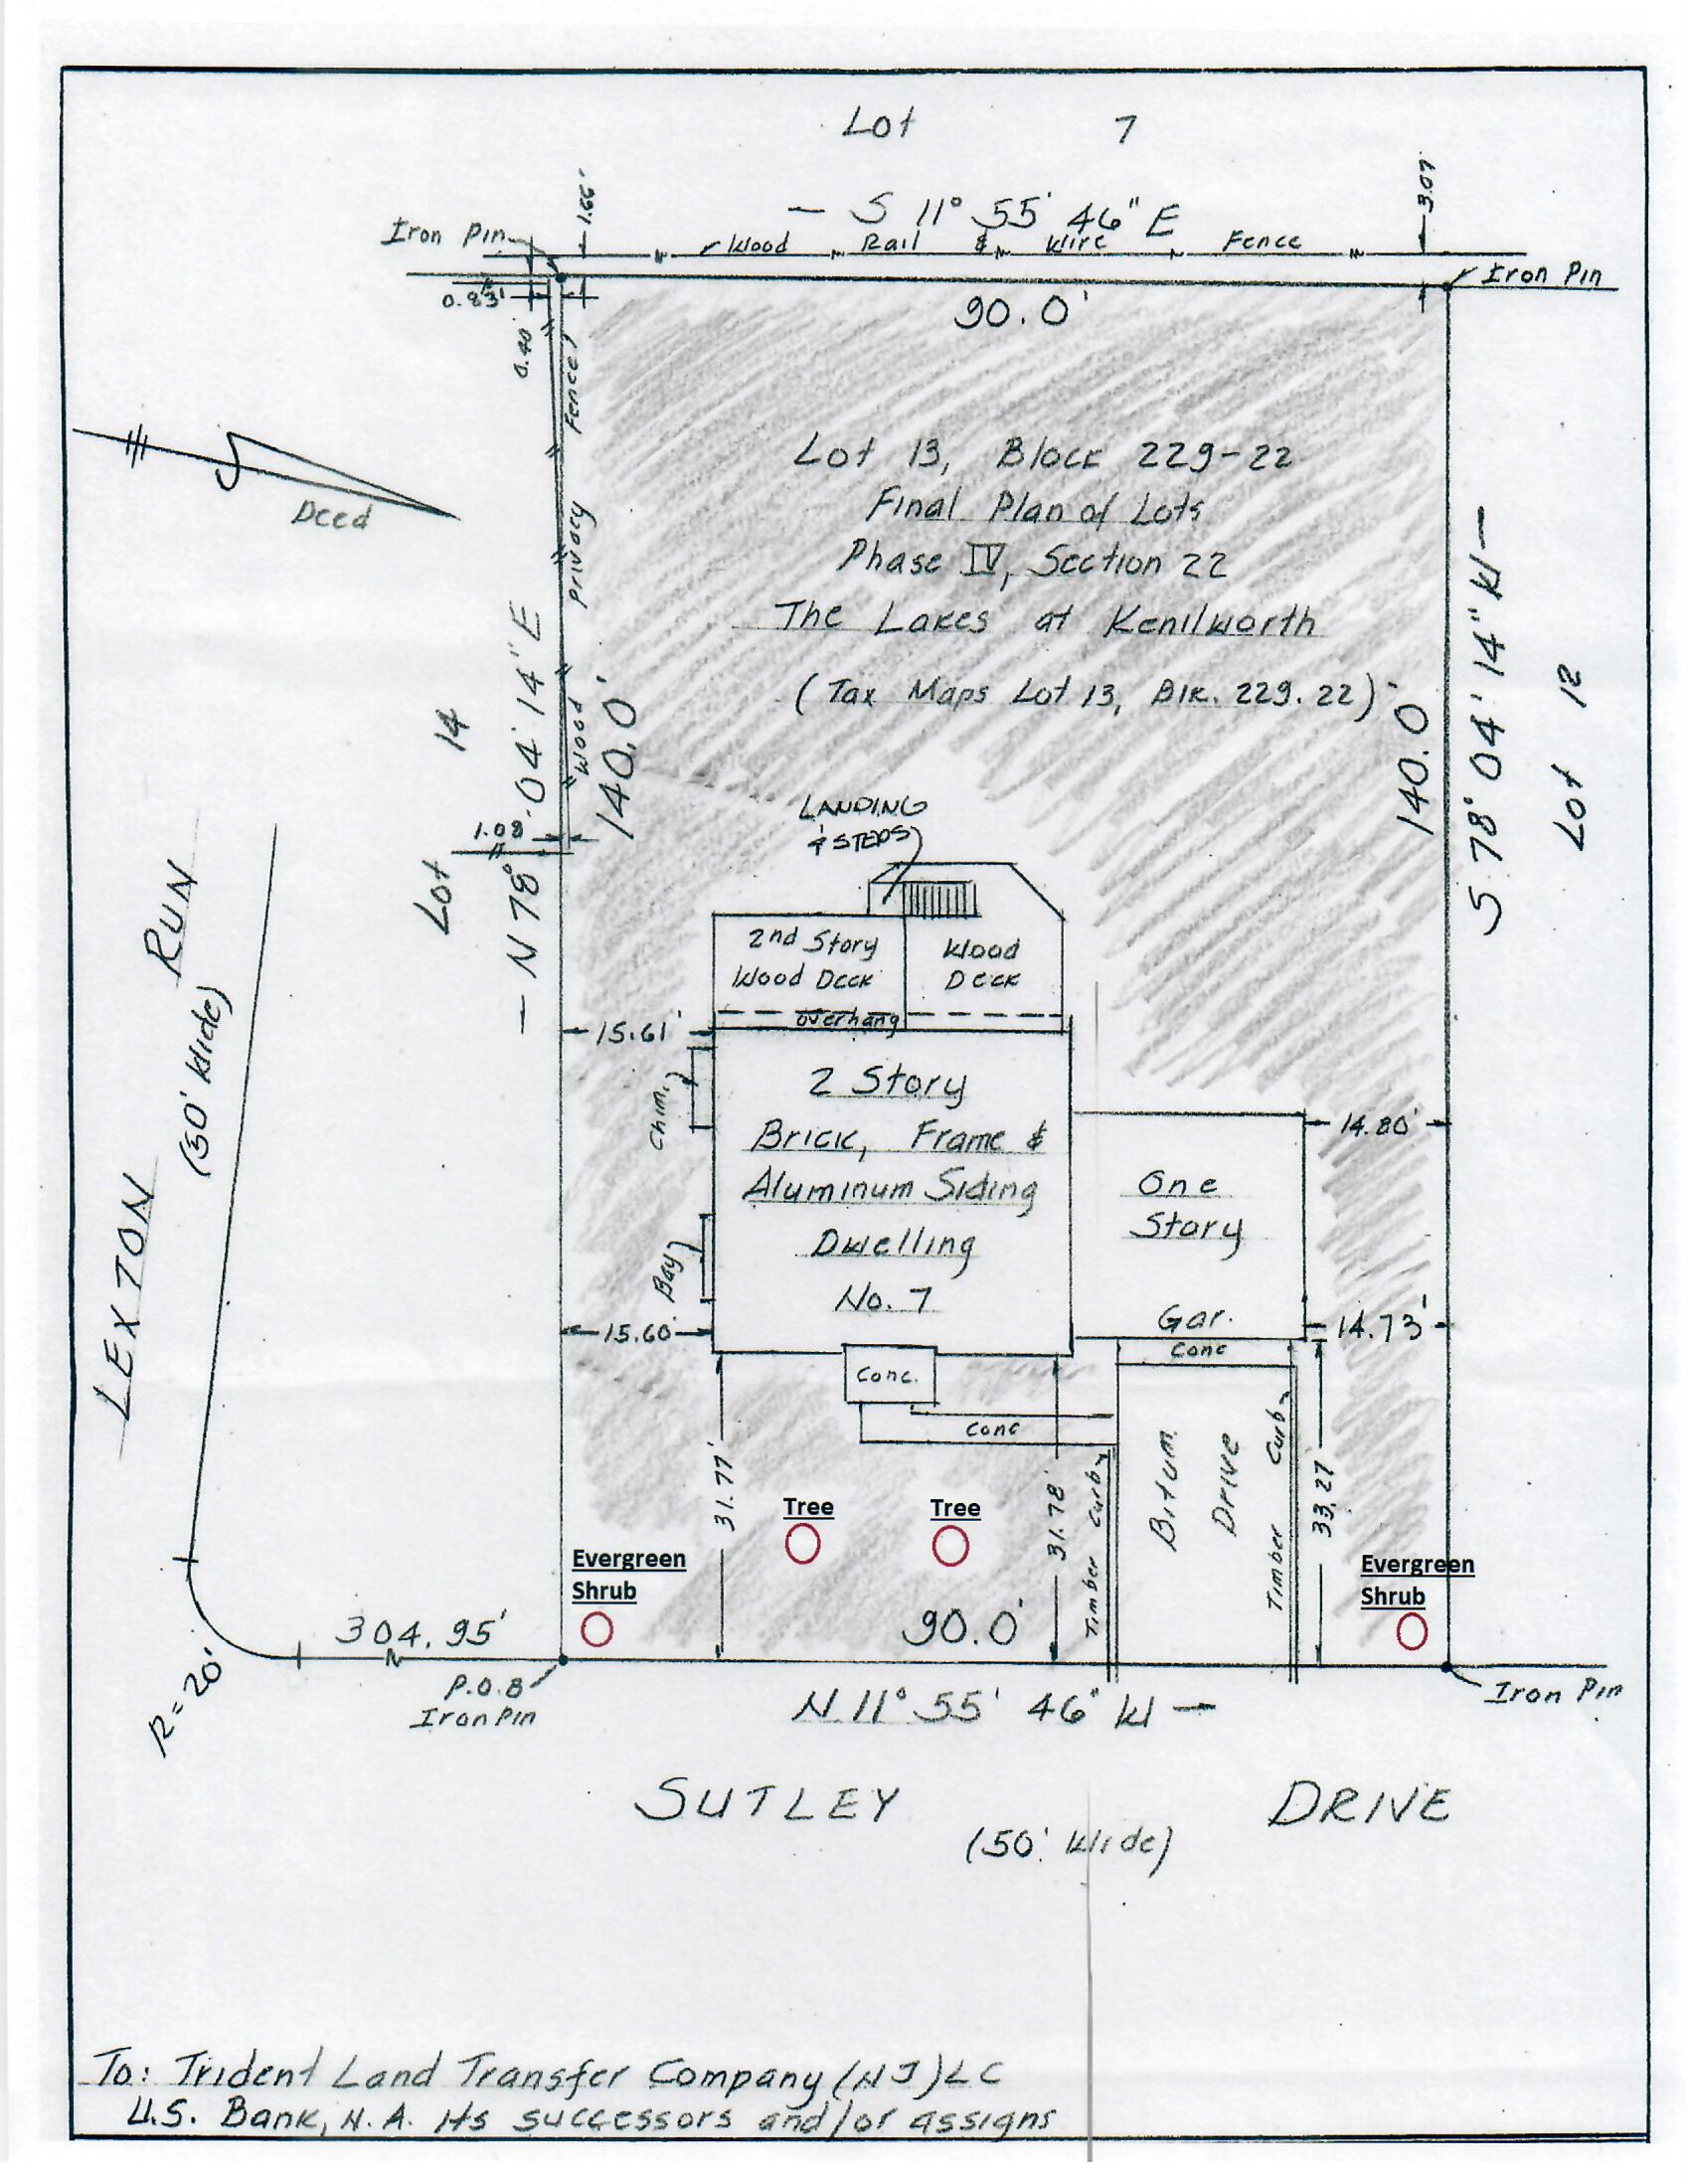 Lot 7
— S 11° 55' 46" E
1.66'
3.07
Iron Pin
Wood Rail & Wire Fence
Iron Pin
90.0'
0.83'
0.40
Wood Privacy Fence
Deed
Lot 13, Block 229-22
Final Plan of Lots
Phase IV, Section 22
The Lakes at Kenilworth
(Tax Maps Lot 13, Blk. 229.22)
— N 78° 04' 14" E
140.0'
Lot 14
140.0'
S 78° 04' 14" W —
Lot 12
1.08
LANDING
& STEPS
2nd Story
Wood Deck
Wood
Deck
overhang
15.61'
Chim.
2 Story
Brick, Frame &
Aluminum Siding
Dwelling
No. 7
Bay
15.60'
One
Story
Gar.
14.80'
14.73'
Conc
Conc.
Conc
31.77'
31.78'
Timber Curb
Bitum.
Drive
Timber Curb
33.27
Tree
Tree
Evergreen
Shrub
Evergreen
Shrub
90.0'
LEXTON RUN
(50' Wide)
R=20'
304.95'
P.O.B
Iron Pin
Iron Pin
N 11° 55' 46" W —
SUTLEY DRIVE
(50' Wide)
To: Trident Land Transfer Company (NJ) LC
U.S. Bank, N.A. its successors and/or assigns